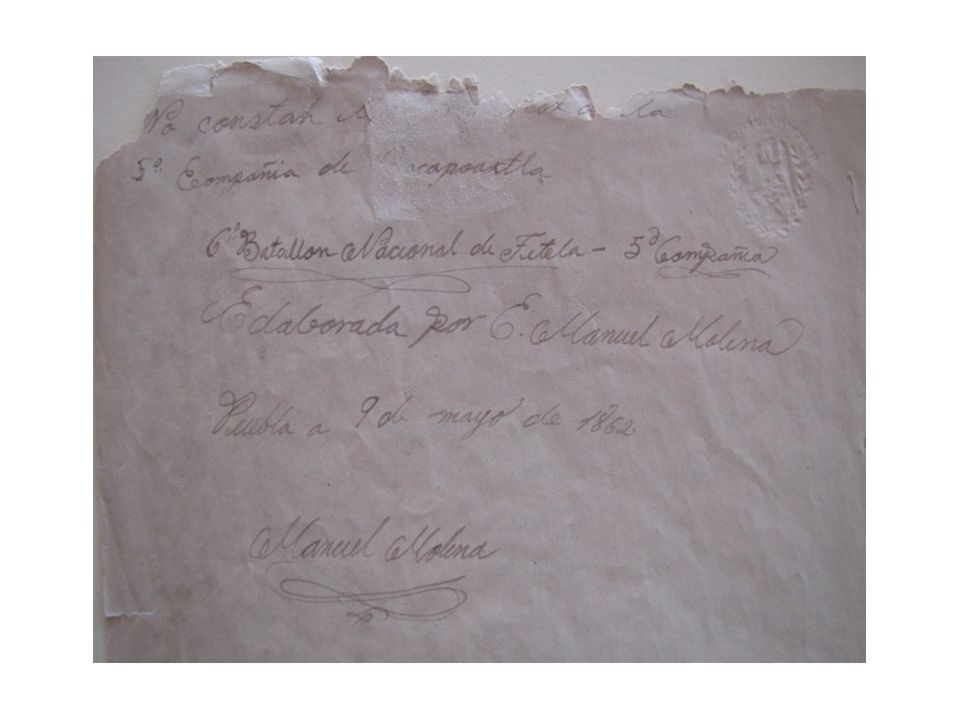 No constan la
5ª Compañia de
6º Batallon Nacional de Tetela - 5ª Compañia
Elaborada por E. Manuel Molina
Puebla a 9 de mayo de 1862
Manuel Molina